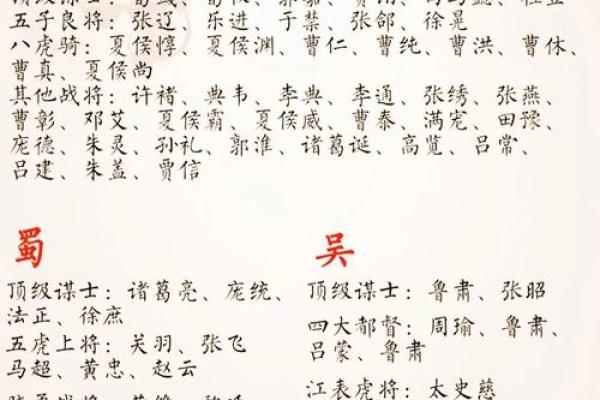 五子良将：张辽、乐进、于禁、张郃、徐晃
八虎骑：夏侯惇、夏侯渊、曹仁、曹纯、曹洪、曹休、
曹真、夏侯尚
其他战将：许褚、典韦、李典、李通、张绣、张燕、
曹彰、邓艾、夏侯霸、夏侯威、曹泰、满宠、田豫、
庞德、朱灵、孙礼、郭淮、诸葛诞、高览、吕常、
吕建、朱盖、贾信
蜀
顶级谋士：诸葛亮、庞统、
法正、徐庶
五虎上将：关羽、张飞
马超、黄忠、赵云
吴
顶级谋士：鲁肃、张昭
四大都督：周瑜、鲁肃、
吕蒙、鲁肃
江表虎将：太史慈